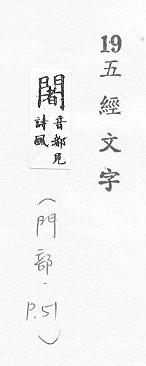 19五經文字
闍
音都見
詩風
(門部.P.51)